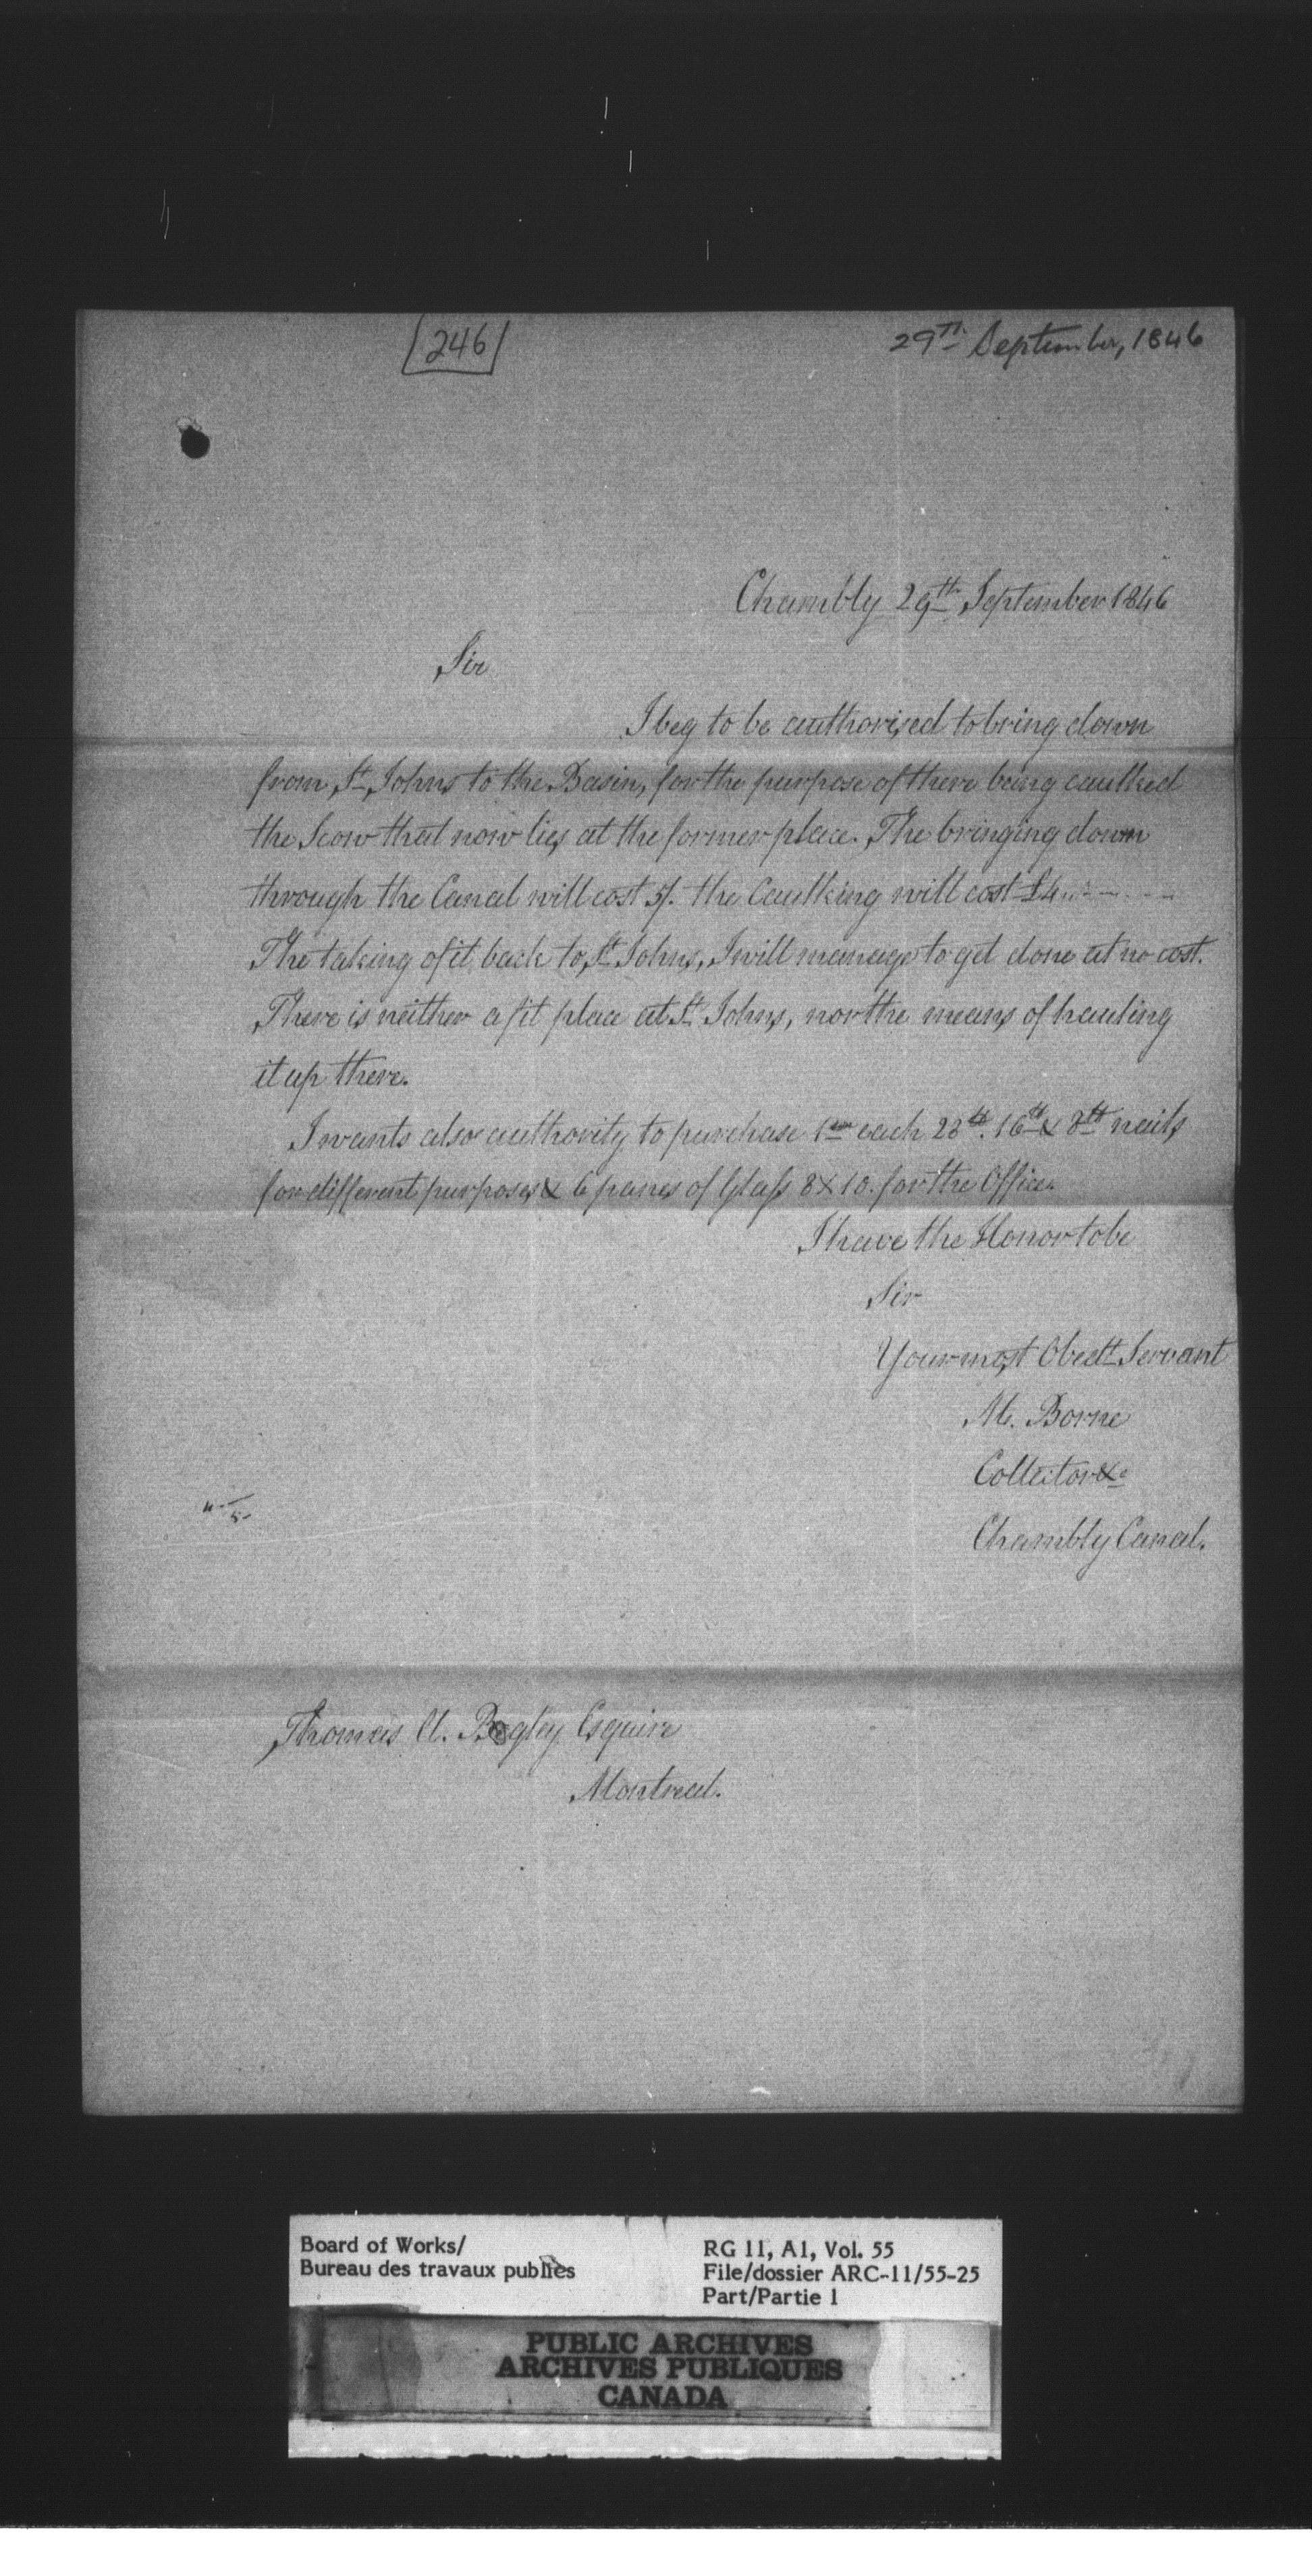 246
29th September, 1846
Chambly 29th September 1846
Sir
I beg to be authorised to bring down
from St Johns to the Basin, for the purpose of there being caulked
the Scow that now lies at the former place. The bringing down
through the Canal will cost 5/. the Caulking will cost £4
The taking of it back to St Johns, I will manage to get done at no cost.
There is neither a fit place at St Johns, nor the means of hauling
it up there.
I wants also authority to purchase 1 each 28 lb. 16 lb & 8 lb nails
for different purposes & 6 panes of Glass 8 X 10. for the Office.
I have the Honor to be
Sir
Your most Obedt Servant
M. Borne
Collector &c
Chambly Canal.
Thomas A. Begley Esquire
Montreal.
Board of Works/
Bureau des travaux publics
RG 11, A1, Vol. 55
File/dossier ARC-11/55-25
Part/Partie 1
PUBLIC ARCHIVES
ARCHIVES PUBLIQUES
CANADA